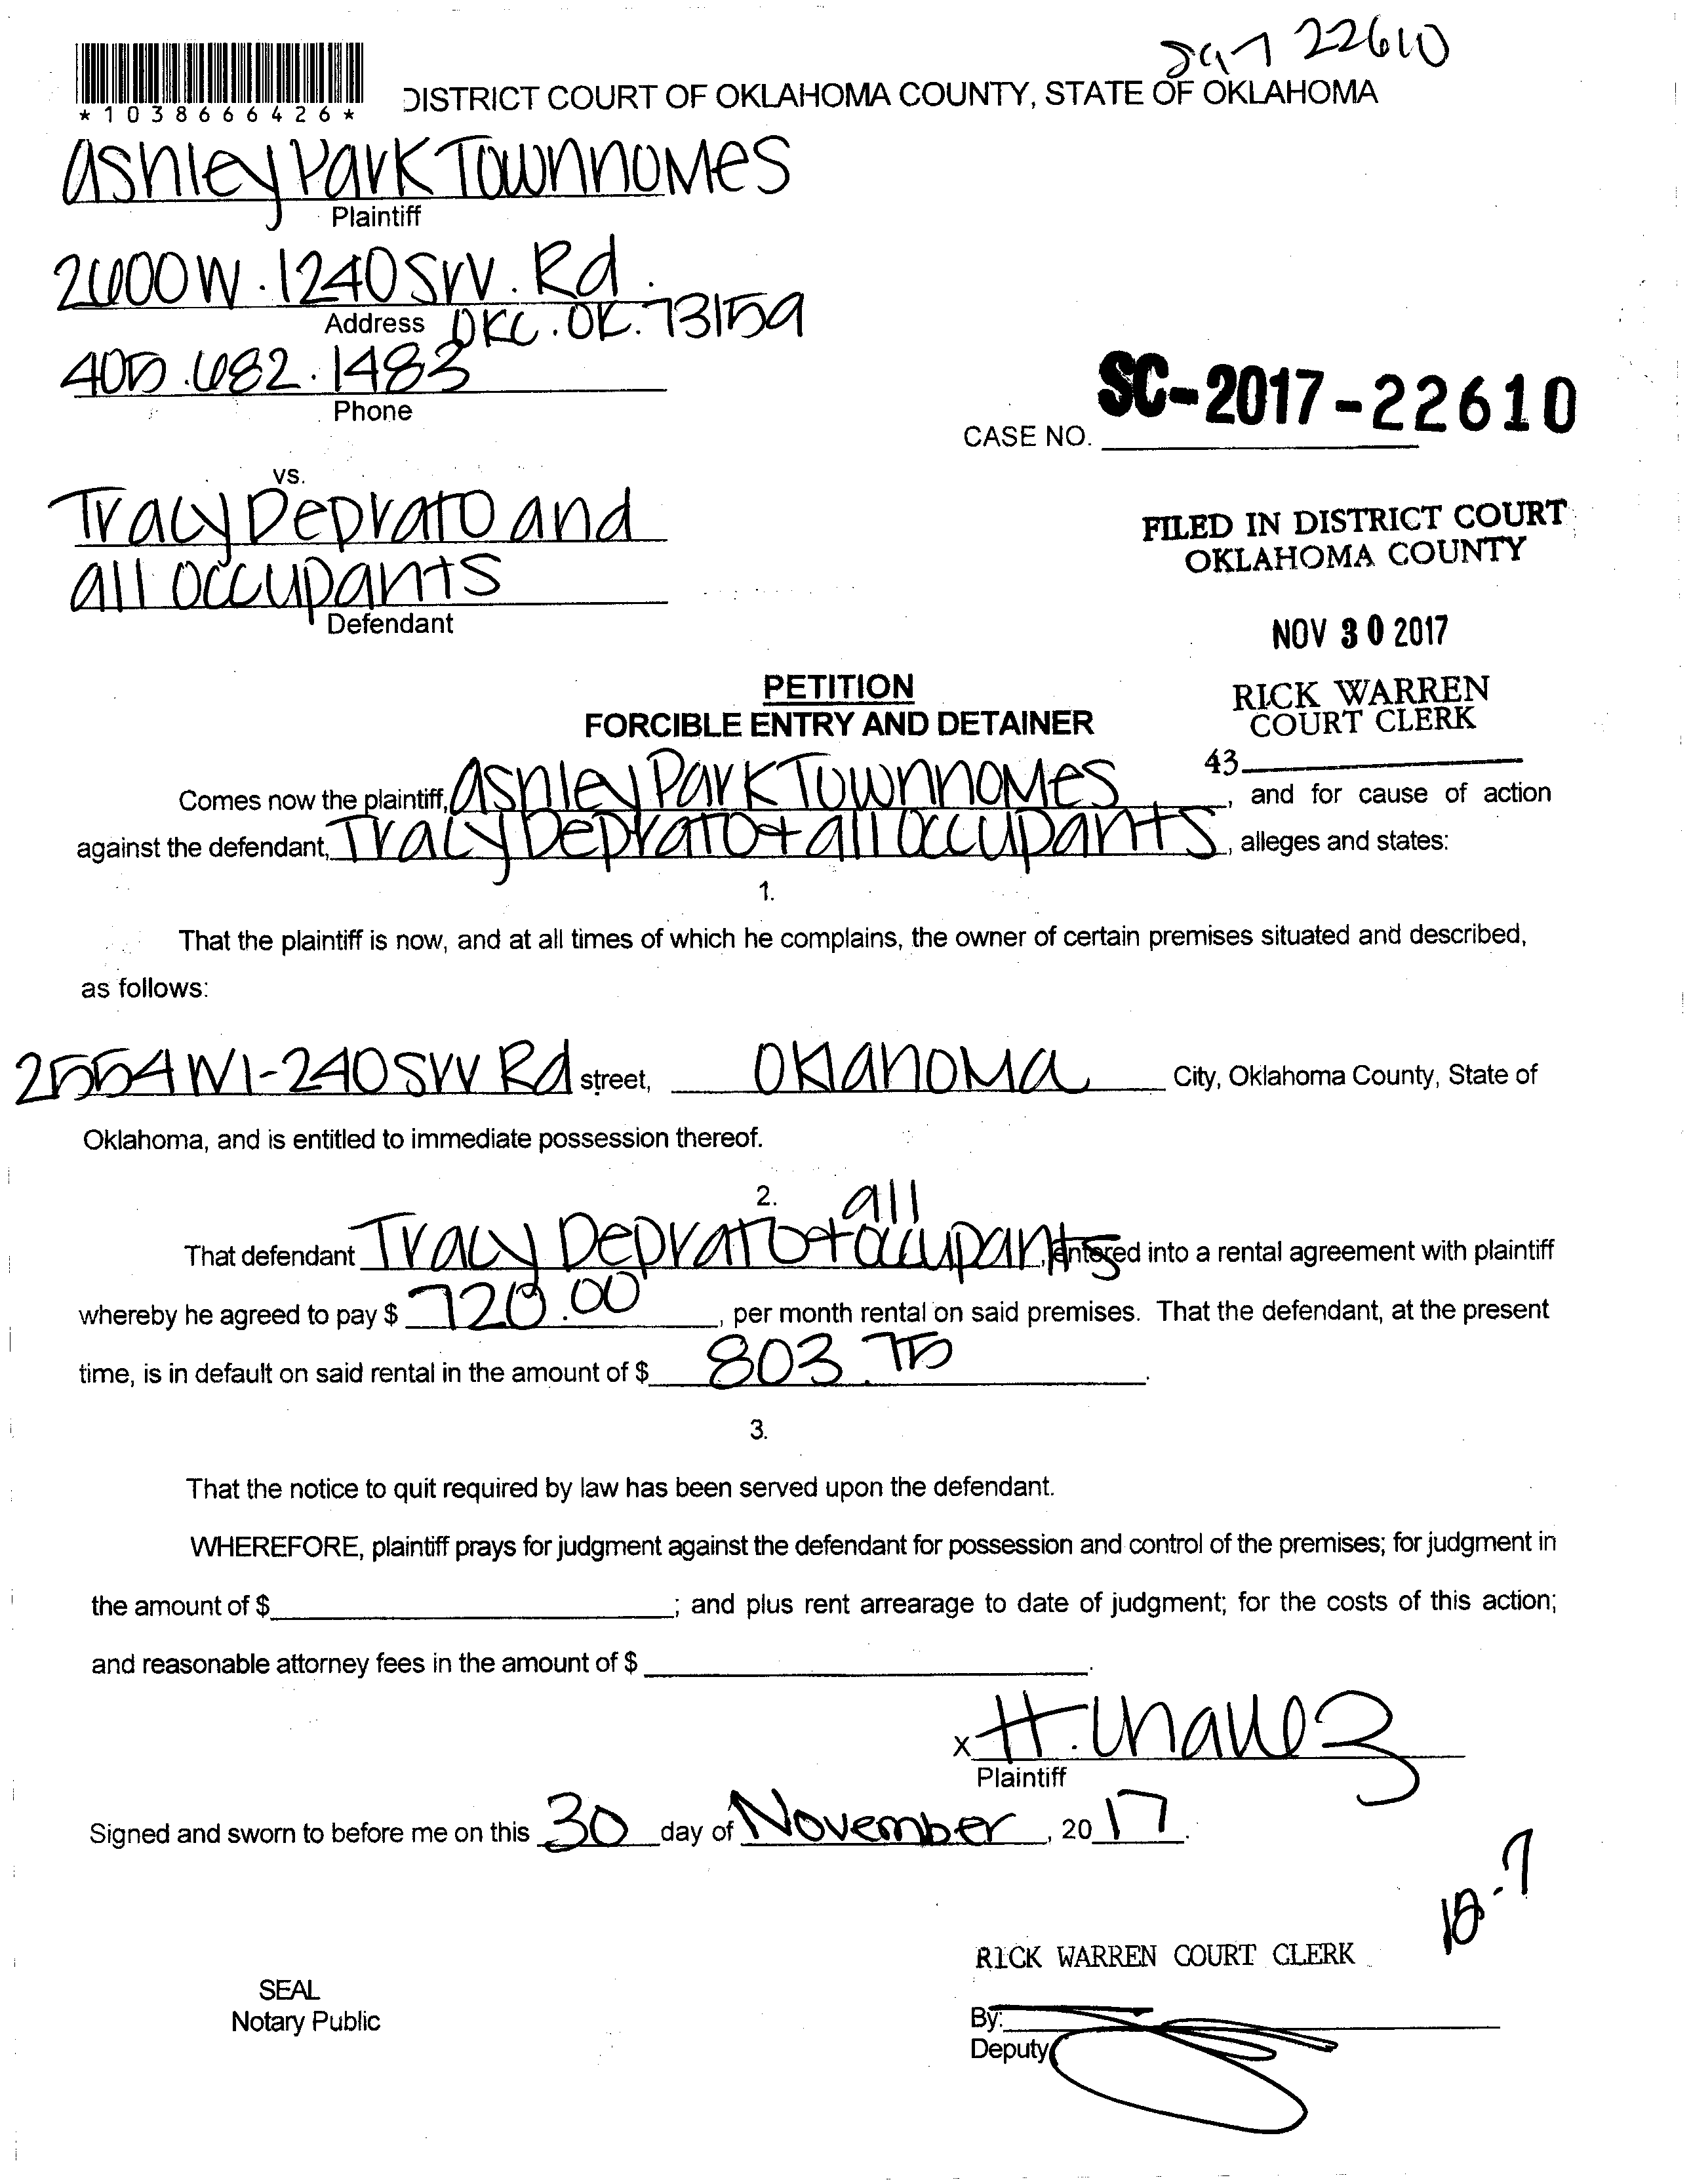 22610
*1038666426*
DISTRICT COURT OF OKLAHOMA COUNTY, STATE OF OKLAHOMA
Ashley Park Townhomes
Plaintiff
2600 W. I240 SrV. Rd.
Address OKC. OK. 73159
405.682.1483
Phone
SC-2017-22610
CASE NO.
vs.
Tracy Deprato and
all occupants
Defendant
FILED IN DISTRICT COURT
OKLAHOMA COUNTY
NOV 30 2017
RICK WARREN
COURT CLERK
43
PETITION
FORCIBLE ENTRY AND DETAINER
Comes now the plaintiff, Ashley Park Townhomes, and for cause of action
against the defendant, Tracy Deprato + all occupants, alleges and states:
1.
That the plaintiff is now, and at all times of which he complains, the owner of certain premises situated and described,
as follows:
2554 W I-240 SVV Rd street, Oklahoma City, Oklahoma County, State of
Oklahoma, and is entitled to immediate possession thereof.
2.
That defendant Tracy Deprato + all occupants, entered into a rental agreement with plaintiff
whereby he agreed to pay $ 720.00, per month rental on said premises. That the defendant, at the present
time, is in default on said rental in the amount of $ 803.75.
3.
That the notice to quit required by law has been served upon the defendant.
WHEREFORE, plaintiff prays for judgment against the defendant for possession and control of the premises; for judgment in
the amount of $ ; and plus rent arrearage to date of judgment; for the costs of this action;
and reasonable attorney fees in the amount of $ .
x H. Chavez
Plaintiff
Signed and sworn to before me on this 30 day of November, 2017.
12-7
RICK WARREN COURT CLERK
SEAL
Notary Public
By:
Deputy